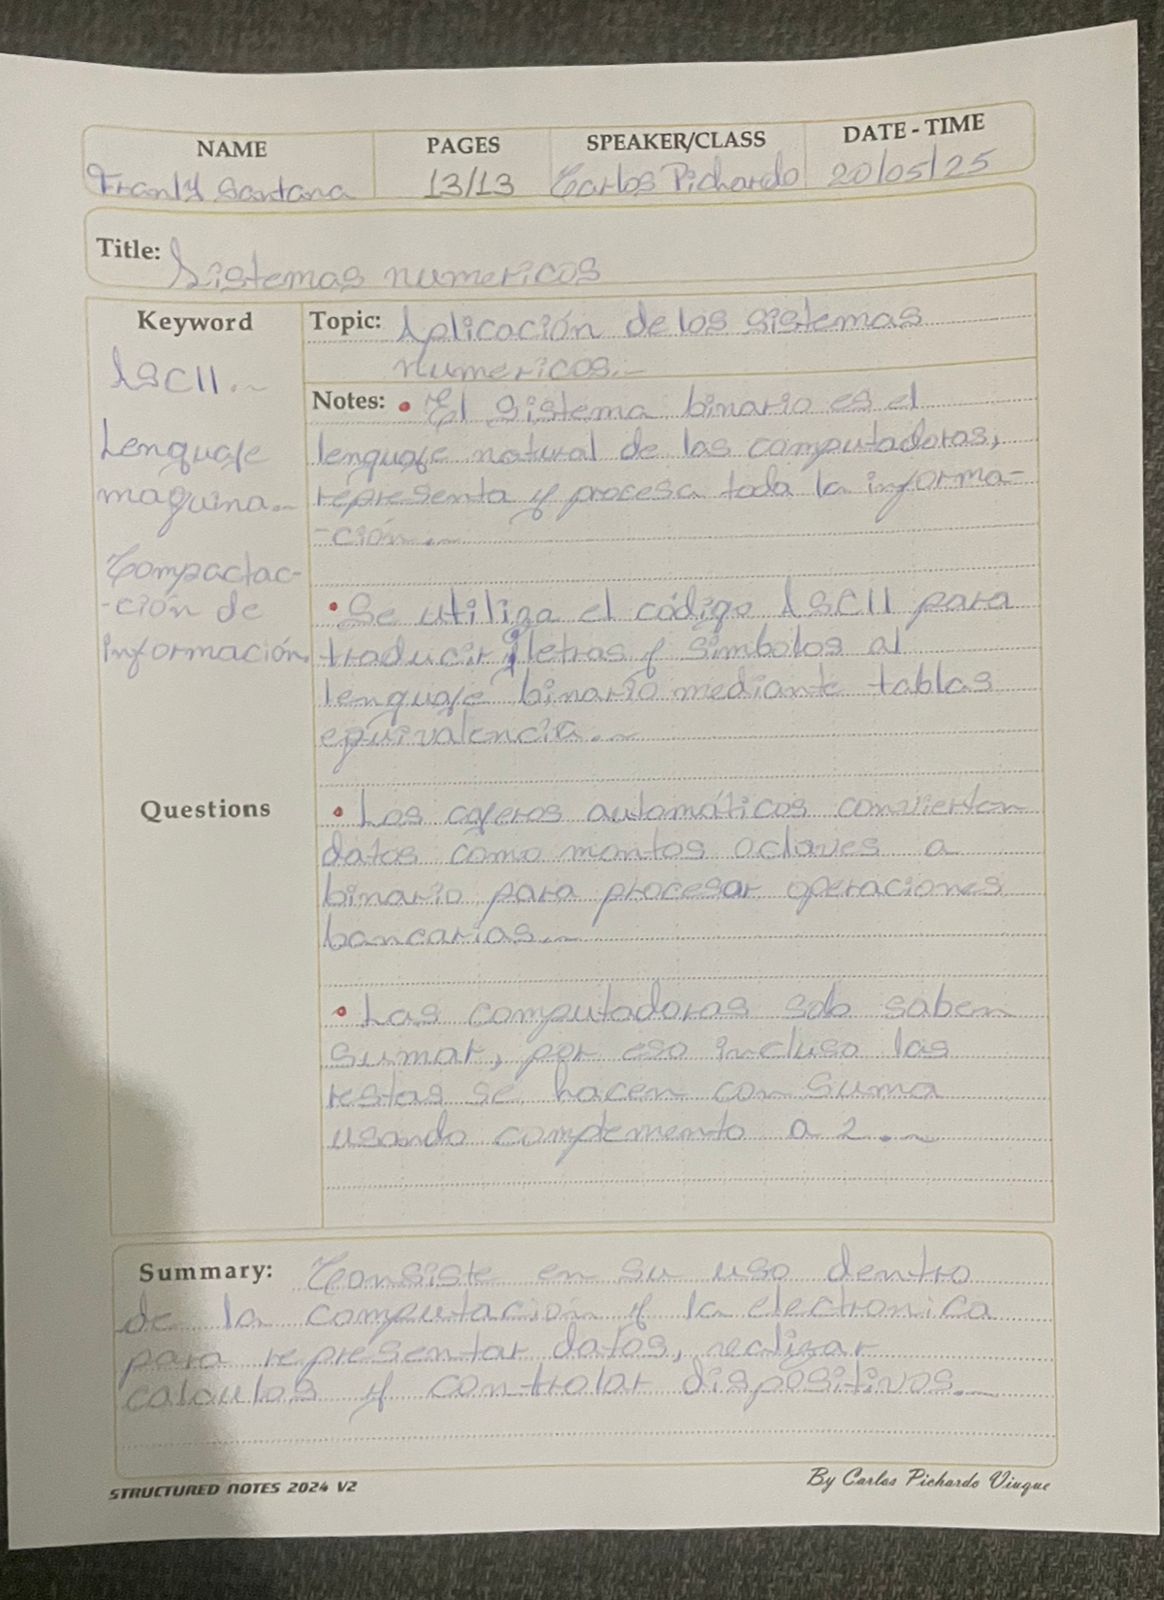 NAME PAGES SPEAKER/CLASS DATE - TIME
Franly Santana 13/13 Carlos Pichardo 20/05/25
Title: Sistemas numericos
Keyword
ASCII.
Lenguaje
maquina.
Compactac-
-ción de
información.
Questions
Topic: Aplicación de los sistemas
numericos.
Notes: • El sistema binario es el
lenguaje natural de las computadoras,
representa y procesa toda la informa-
-ción.
• Se utiliza el código ASCII para
traducir letras y simbolos al
lenguaje binario mediante tablas
equivalencia.
• Los cajeros automáticos convierten
datos como montos o claves a
binario para procesar operaciones
bancarias.
• Las computadoras solo saben
sumar, por eso incluso las
restas se hacen con suma
usando complemento a 2.
Summary: Consiste en su uso dentro
de la computación y la electronica
para representar datos, realizar
calculos y controlar dispositivos.
STRUCTURED NOTES 2024 V2
By Carlos Pichardo Viuque